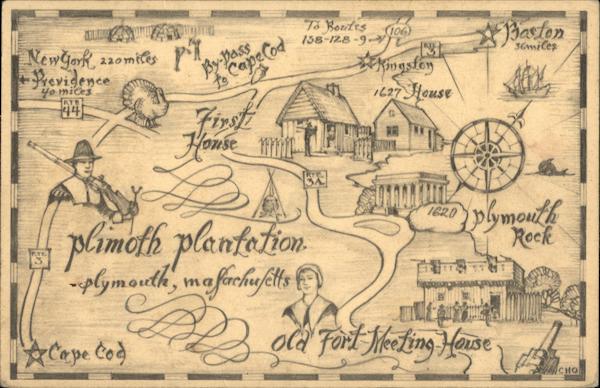 To Routes
138-128-9→
106
Boston
36 miles
RTE
3
New York 220 miles
← Providence
40 miles
By-Pass
to Cape Cod
Kingston
1627 House
RTE
44
First
House
RTE
3A
1620
Plymouth
Rock
Plimoth Plantation
-Plymouth, Massachusetts
RTE
3
Old Fort-Meeting-House
Cape Cod